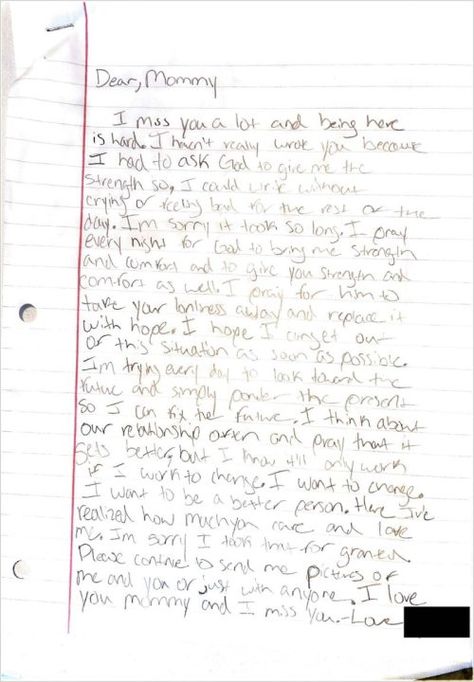 Dear, Mommy
I miss you a lot and being here
is hard. I haven't really wrote you because
I had to ask God to give me the
strength so, I could write without
crying or feeling bad for the rest of the
day. I'm sorry it took so long. I pray
every night for God to bring me strength
and comfort and to give you strength and
comfort as well. I pray for him to
take your lonliness away and replace it
with hope. I hope I can get out
of this situation as soon as possible.
I'm trying every day to look toward the
future and simply ponder the present
so I can fix the future. I think about
our relationship often and pray that it
gets better, but I know it'll only work
if I work to change. I want to change.
I want to be a better person. Here I've
realized how much you care and love
me. I'm sorry I took that for granted.
Please continue to send me pictures of
me and you or just with anyone. I love
you mommy and I miss you. -Love